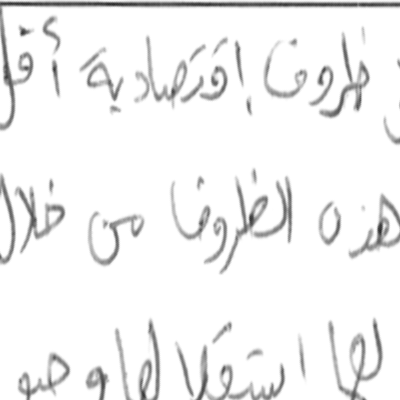 ظروف إقتصادية أقل
هذه الظروف من خلال
لها استغلالها وصو